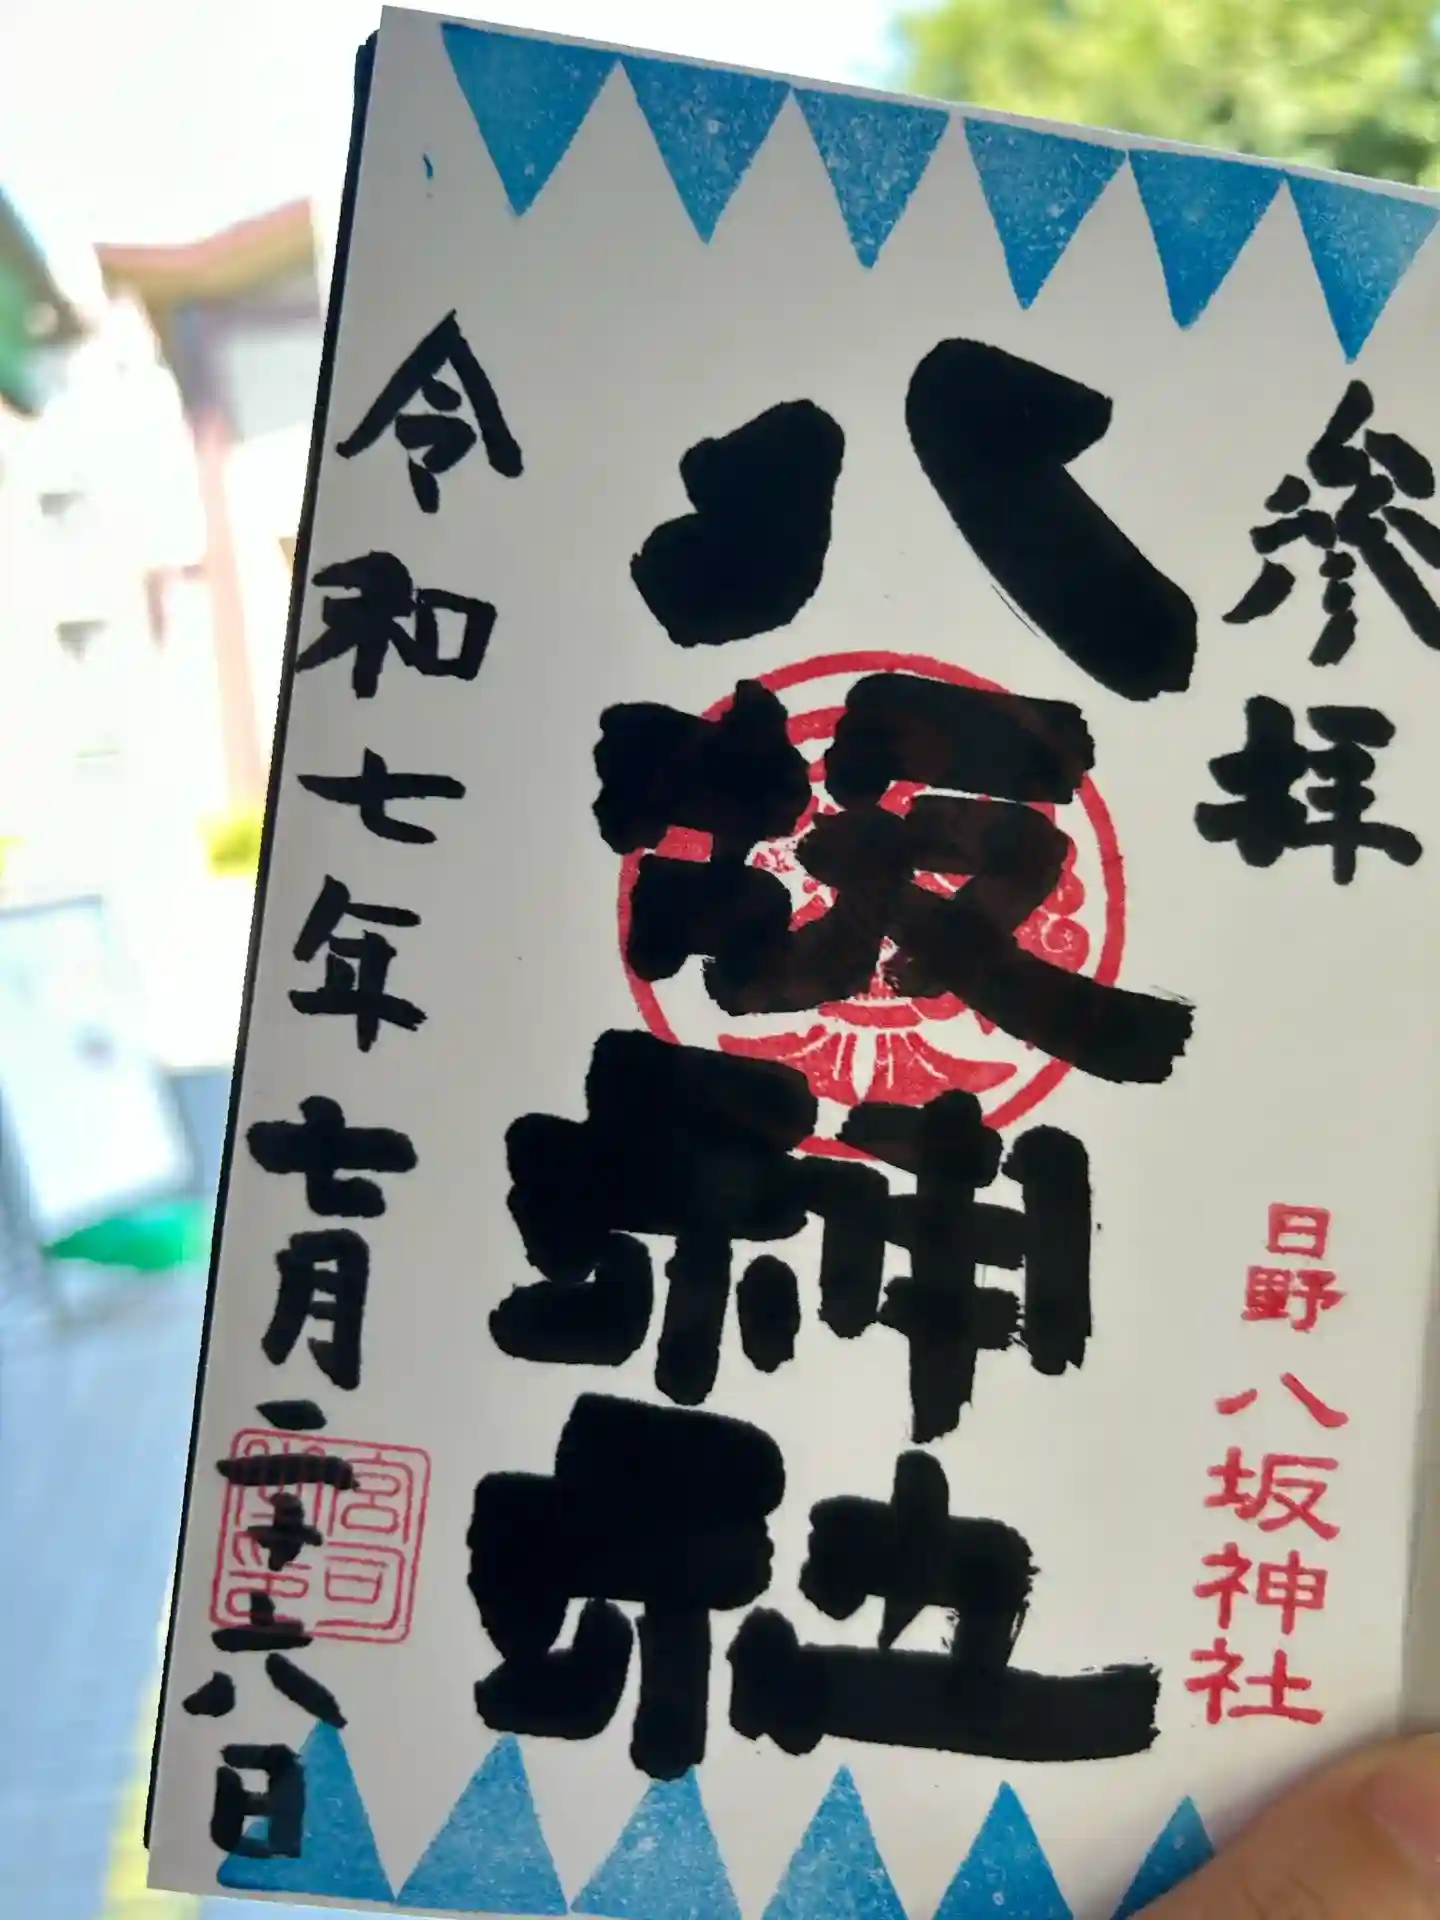 参拝
日野 八坂神社
八坂神社
令和七年七月二十六日
宮司之印